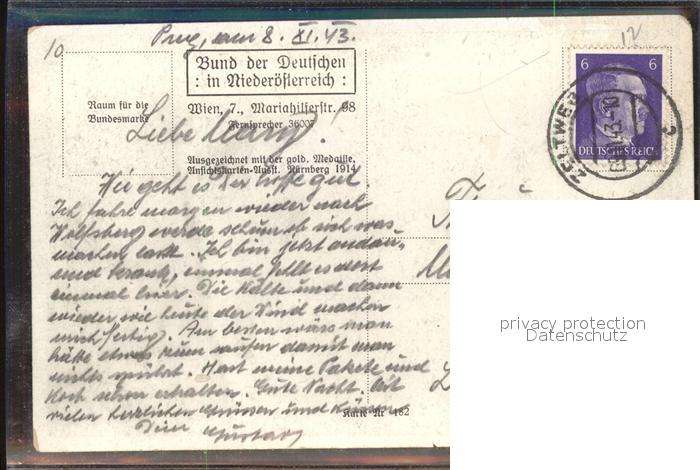 10
12
Prag, am 8. XI. 43.
Bund der Deutschen
: in Niederösterreich :
Wien, 7., Mariahilferstr. 98
Fernsprecher 36007
Raum für die
Bundesmarke
Ausgezeichnet mit der gold. Medaille,
Ansichtskarten-Ausst. Nürnberg 1914
6 6
DEUTSCHES REICH
ZELTWEG
Liebe
Wie geht es Dir hoffe gut.
Ich fahre morgen wieder nach
Wolfsberg werde schaun ob sich was
machen lasst. Ich bin jetzt andau-
ernd krank, einmal fehlt es dort
einmal hier. Die Kälte und dann
wieder wie heute der Wind machen
mich fertig. Am besten wäre man
hätte etwas zum saufen damit man
nichts spürt. Hast meine Pakete und
Koch schon erhalten. Gute Nacht. Mit
vielen herzlichen Grüssen und Küssen
Dein Gustav
Karte Nr 182
privacy protection
Datenschutz